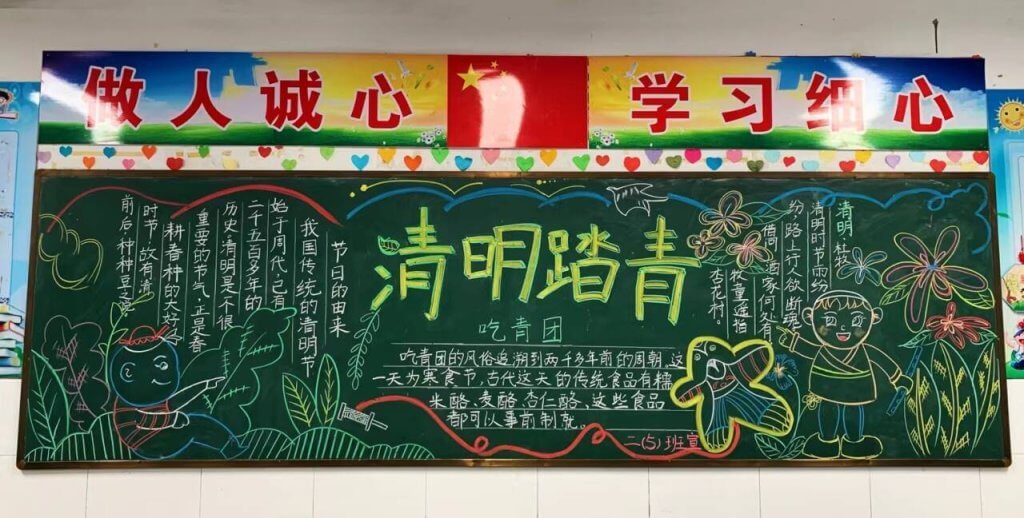 做人诚心
学习细心
清明踏青
节日的由来
我国传统的清明节
始于周代,已有
二千五百多年的
历史清明是个很
重要的节气,正是春
耕春种的大好
时节,故有"清
前后种种豆之
吃青团
吃青团的风俗追溯到两千多年前的周朝,这
一天为寒食节,古代这天的传统食品有糯
米酪、麦酪、杏仁酪、这些食品
都可以事前制就。
二(5)班宣
清明·杜牧
清明时节雨纷
纷,路上行人欲断魂。
借问酒家何处有
牧童遥指
杏花村。